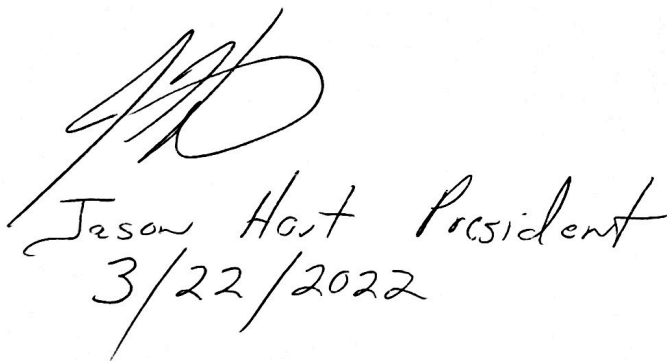 Jason Hart President
3/22/2022